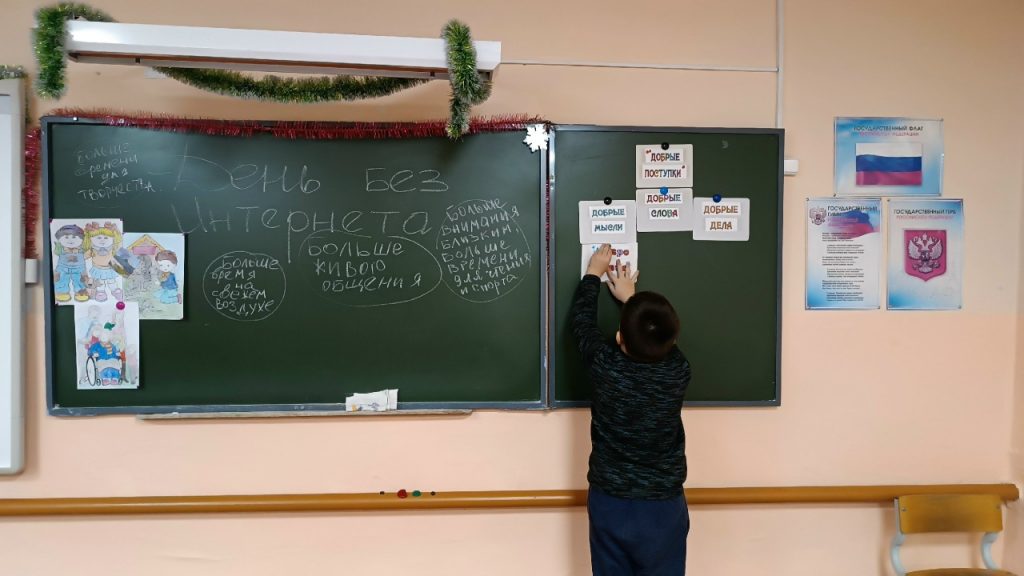 Больше
времени
для
творчества.
День без
Интернета
Больше
время
на
свежем
воздухе
Больше
живого
общения
Больше
внимания
близким.
Больше
времени
для чтения
и спорта
ДОБРЫЕ
ПОСТУПКИ
ДОБРЫЕ
МЫСЛИ
ДОБРЫЕ
СЛОВА
ДОБРЫЕ
ДЕЛА
ГОСУДАРСТВЕННЫЙ ФЛАГ
РОССИЙСКОЙ ФЕДЕРАЦИИ
ГОСУДАРСТВЕННЫЙ
ГИМН
ГОСУДАРСТВЕННЫЙ ГЕРБ
РОССИЙСКОЙ ФЕДЕРАЦИИ